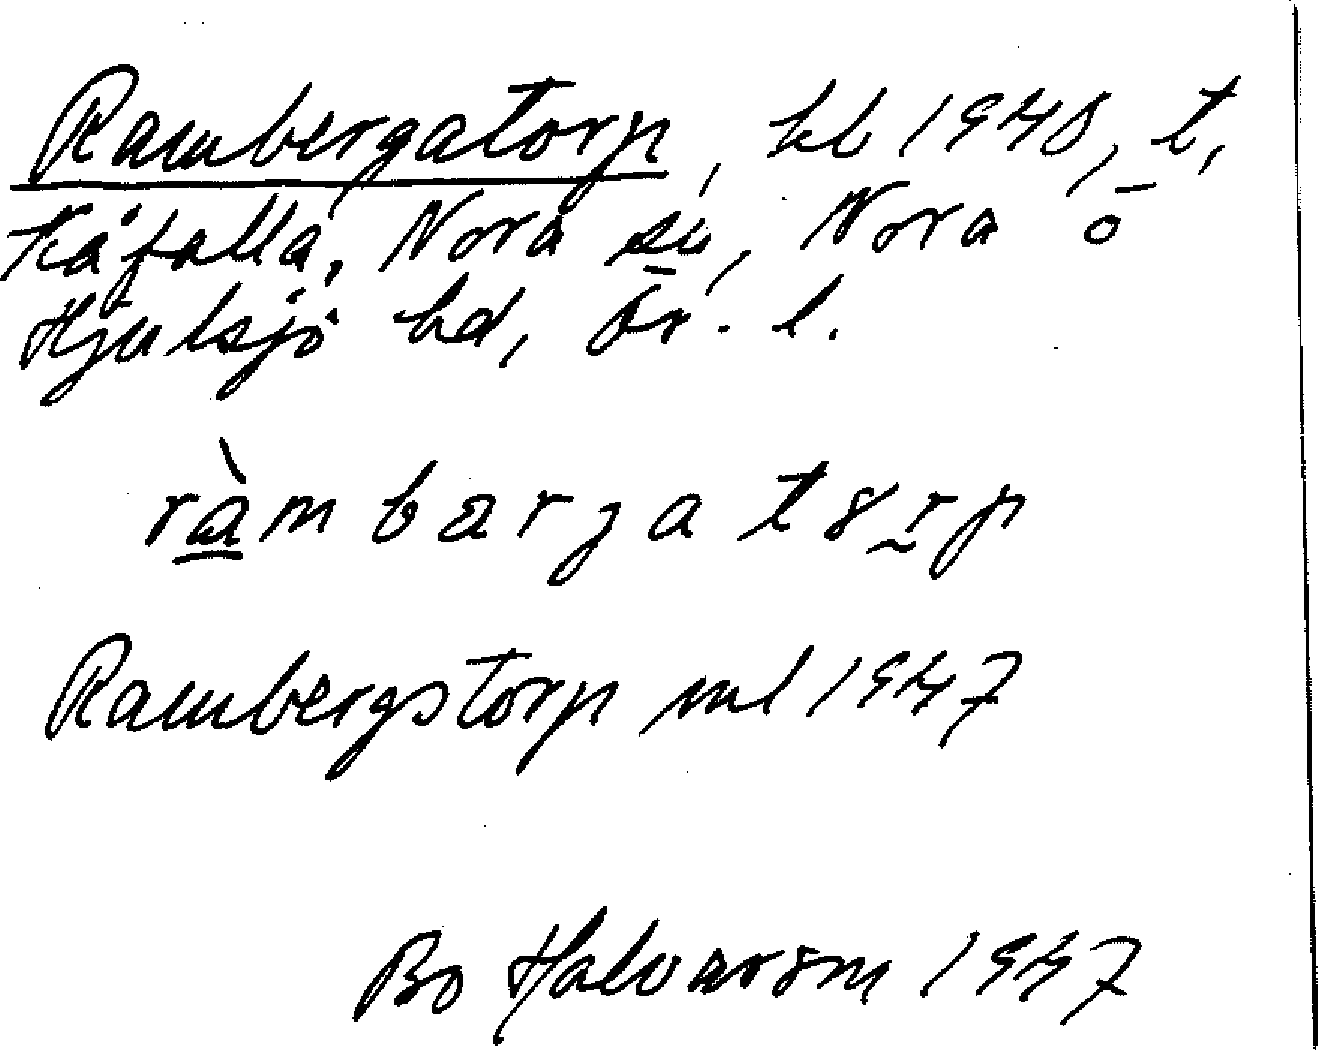 Rambergatorp, kb 1940, t,
Kåfalla, Nora sn, Nora o
Hjulsjö bd, Ör. l.
ràmbargatorp
Rambergstorp ml 1947
Bo Halvarsson 1947